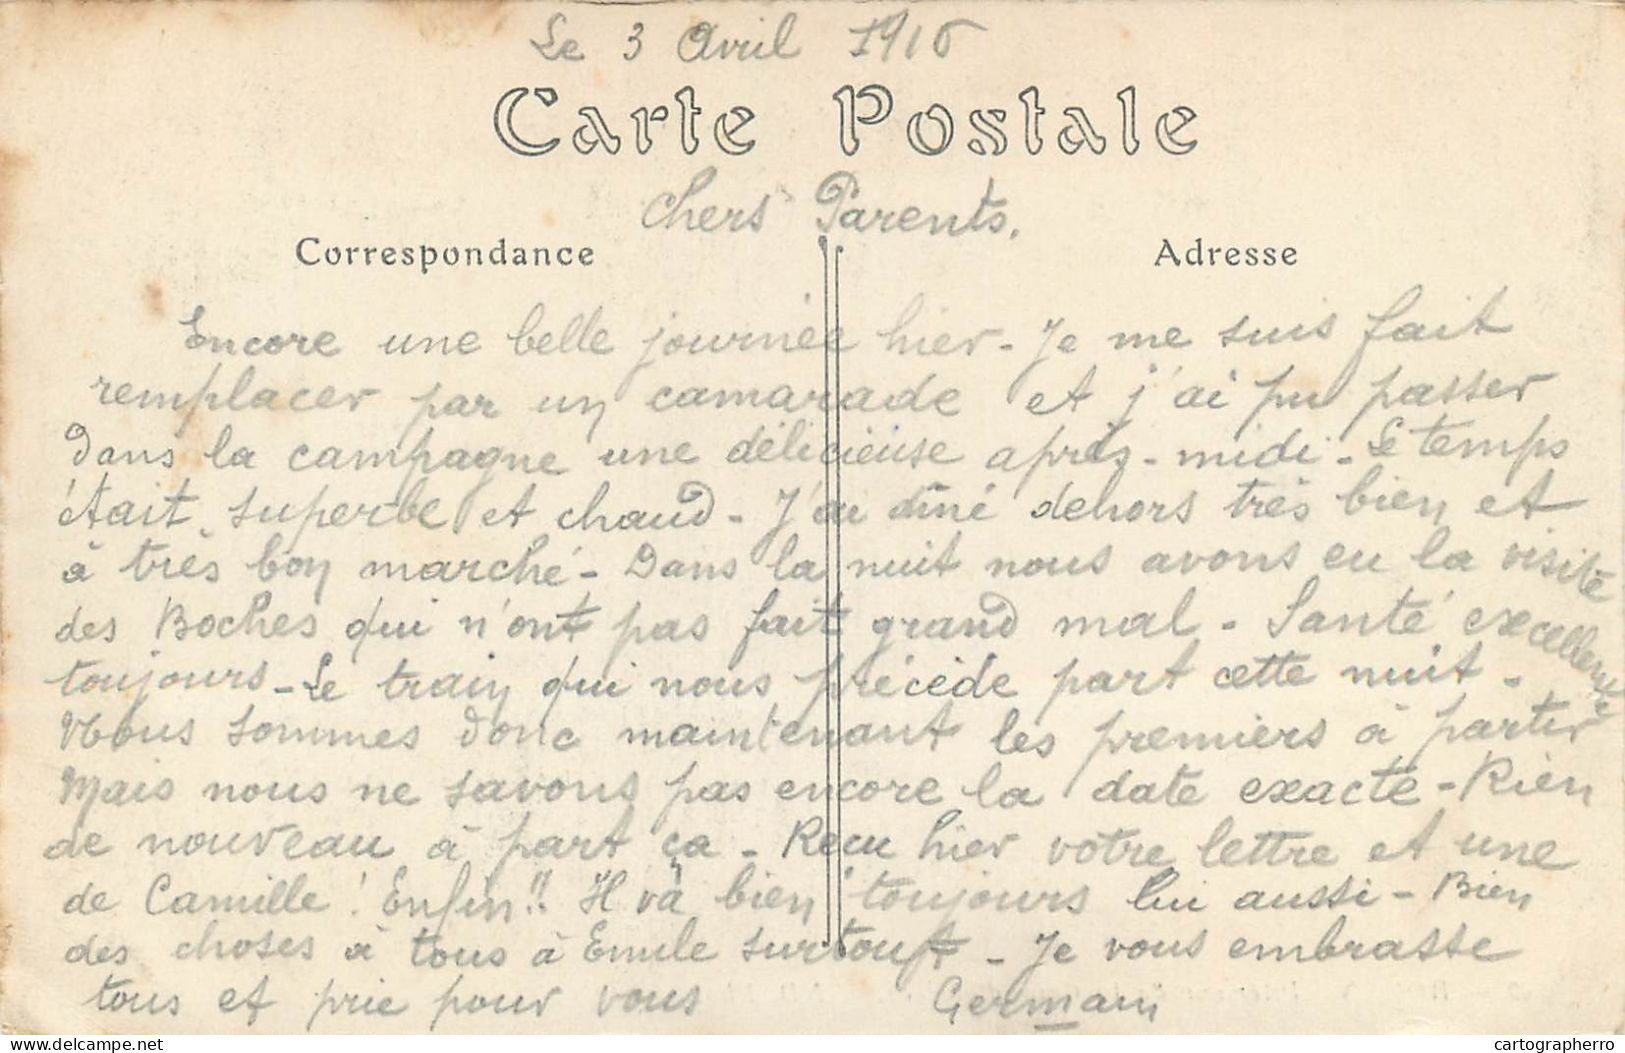 Le 3 Avril 1916
Carte Postale
Chers Parents.
Correspondance
Adresse
Encore une belle journée hier - Je me suis fait
remplacer par un camarade et j'ai pu passer
dans la campagne une délicieuse après-midi - Le temps
était superbe et chaud - J'ai dîné dehors très bien et
à très bon marché - Dans la nuit nous avons eu la visite
des Boches qui n'ont pas fait grand mal - Santé excellente
toujours - Le train qui nous précède part cette nuit -
Nous sommes donc maintenant les premiers à partir
Mais nous ne savons pas encore la date exacte - Rien
de nouveau à part ça - Reçu hier votre lettre et une
de Camille ! Enfin !! Il va bien toujours lui aussi - Bien
des choses à tous à Emile surtout - Je vous embrasse
tous et prie pour vous
Germain
delcampe.net
cartographerro